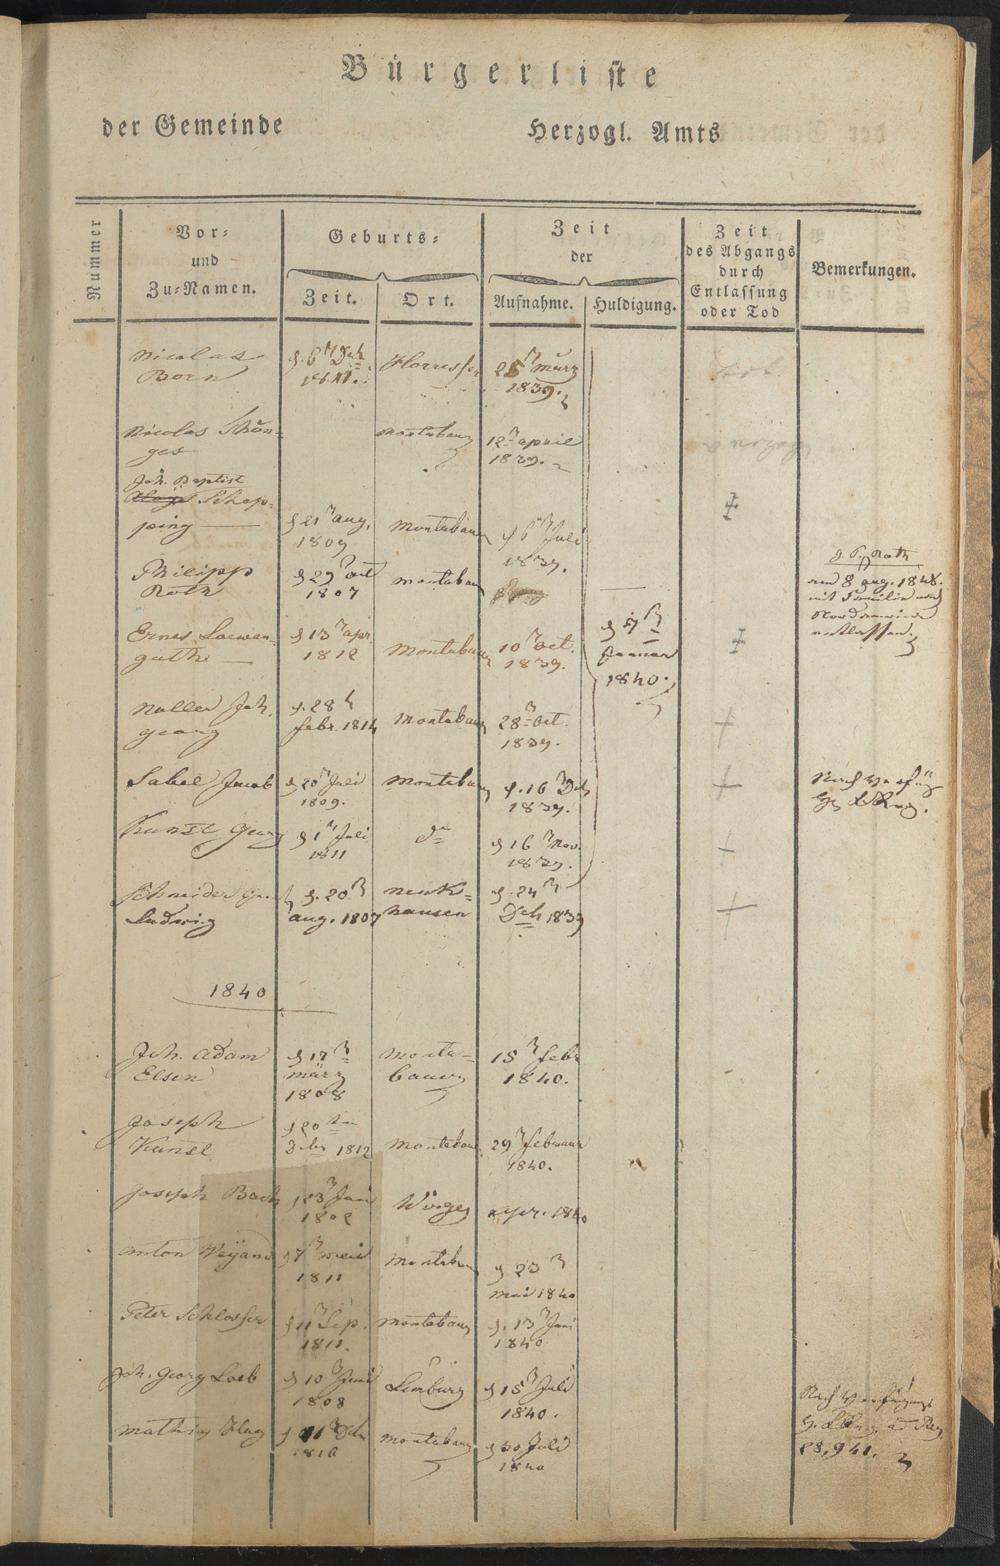 Bürgerliste
der Gemeinde Herzogl. Amts
Nummer
Vor=
und
Zu=Namen.
Geburts=
Zeit. Ort.
Zeit
der
Aufnahme. Huldigung.
Zeit
des Abgangs
durch
Entlassung
oder Tod
Bemerkungen.
Nicolas
Born
d. 6 Deb
1811.
Horressen
25 März
1839.
Nicolas Schön=
ges
Montabaur
12 April
1839.
Joh. Baptist
Schep=
ping
d 21 Aug.
1809
Montabaur
d 6 Juli
1839.
Philipp
Roth
d 29 Oct
1807
Montabaur
J. P. Roth
am 8 Aug. 1848.
mit Familie nach
Nordamerika
entlassen.
Ernes Loewen=
guthe
d 13 Apr.
1812
Montabaur
10 Oct.
1839.
Januar
1840.
Noller Joh.
Georg
d. 28
Febr. 1814
Montabaur
28 Oct.
1839.
Sabel Jacob
d 20 Juli
1809.
Montabaur
d. 16 Deb
1839.
Nach Verfüg
Kunst Georg
d 1 Juli
1811
do
d 16 Nov.
1839.
Schneider
Ludwig
d. 20
Aug. 1807
hausen
d. 24
Deb 1839
1840
Joh. Adam
Elsen
d 17
März
1808
Monta=
baur
15 Febr
1840.
Joseph
Künsl
d 20ten
Debr 1812
Montabaur
29 Februar
1840.
Joseph Bach
d 23 Juni
1802
Wirges
Apr. 1840
Anton Weyand
d 7 Mai
1811
Montabaur
d 23
Mai 1840
Peter Schlosser
d 11 Sep.
1811.
Montabaur
d. 13 Juni
1840
Joh. Georg Loeb
d 10 Juni
1808
Limburg
d 15 Juli
1840.
Nach Verfügung
Mathias Flug
1816
Montabaur
d 30 Juli
1840
28,941.